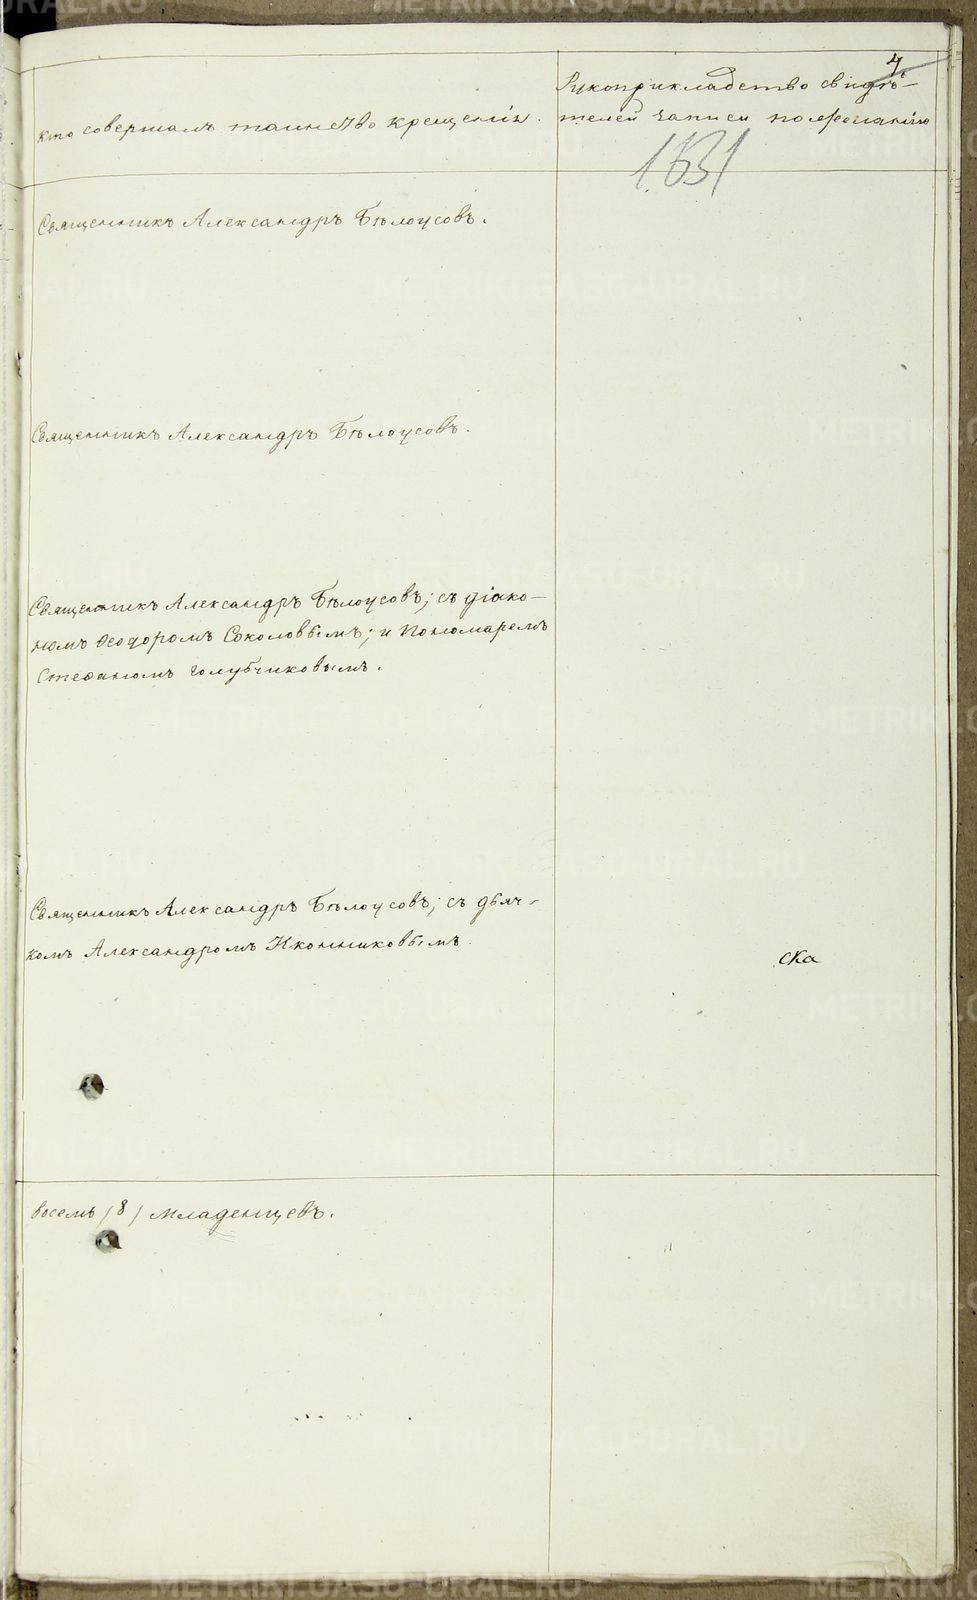 4
кто совершалъ таинство крещенія.
Рукоприкладство свидѣ-
телей записи по желанію
1631
Священникъ Александръ Бѣлоусовъ.
Священникъ Александръ Бѣлоусовъ.
Священникъ Александръ Бѣлоусовъ; съ діако-
номъ Ѳеодоромъ Соколовымъ; и Пономаремъ
Стефаномъ Голубчиковымъ.
Священникъ Александръ Бѣлоусовъ; съ дьяч-
комъ Александромъ Иконниковымъ.
ска
восемь /8/ младенцевъ.
METRIKI.GASO-URAL.RU